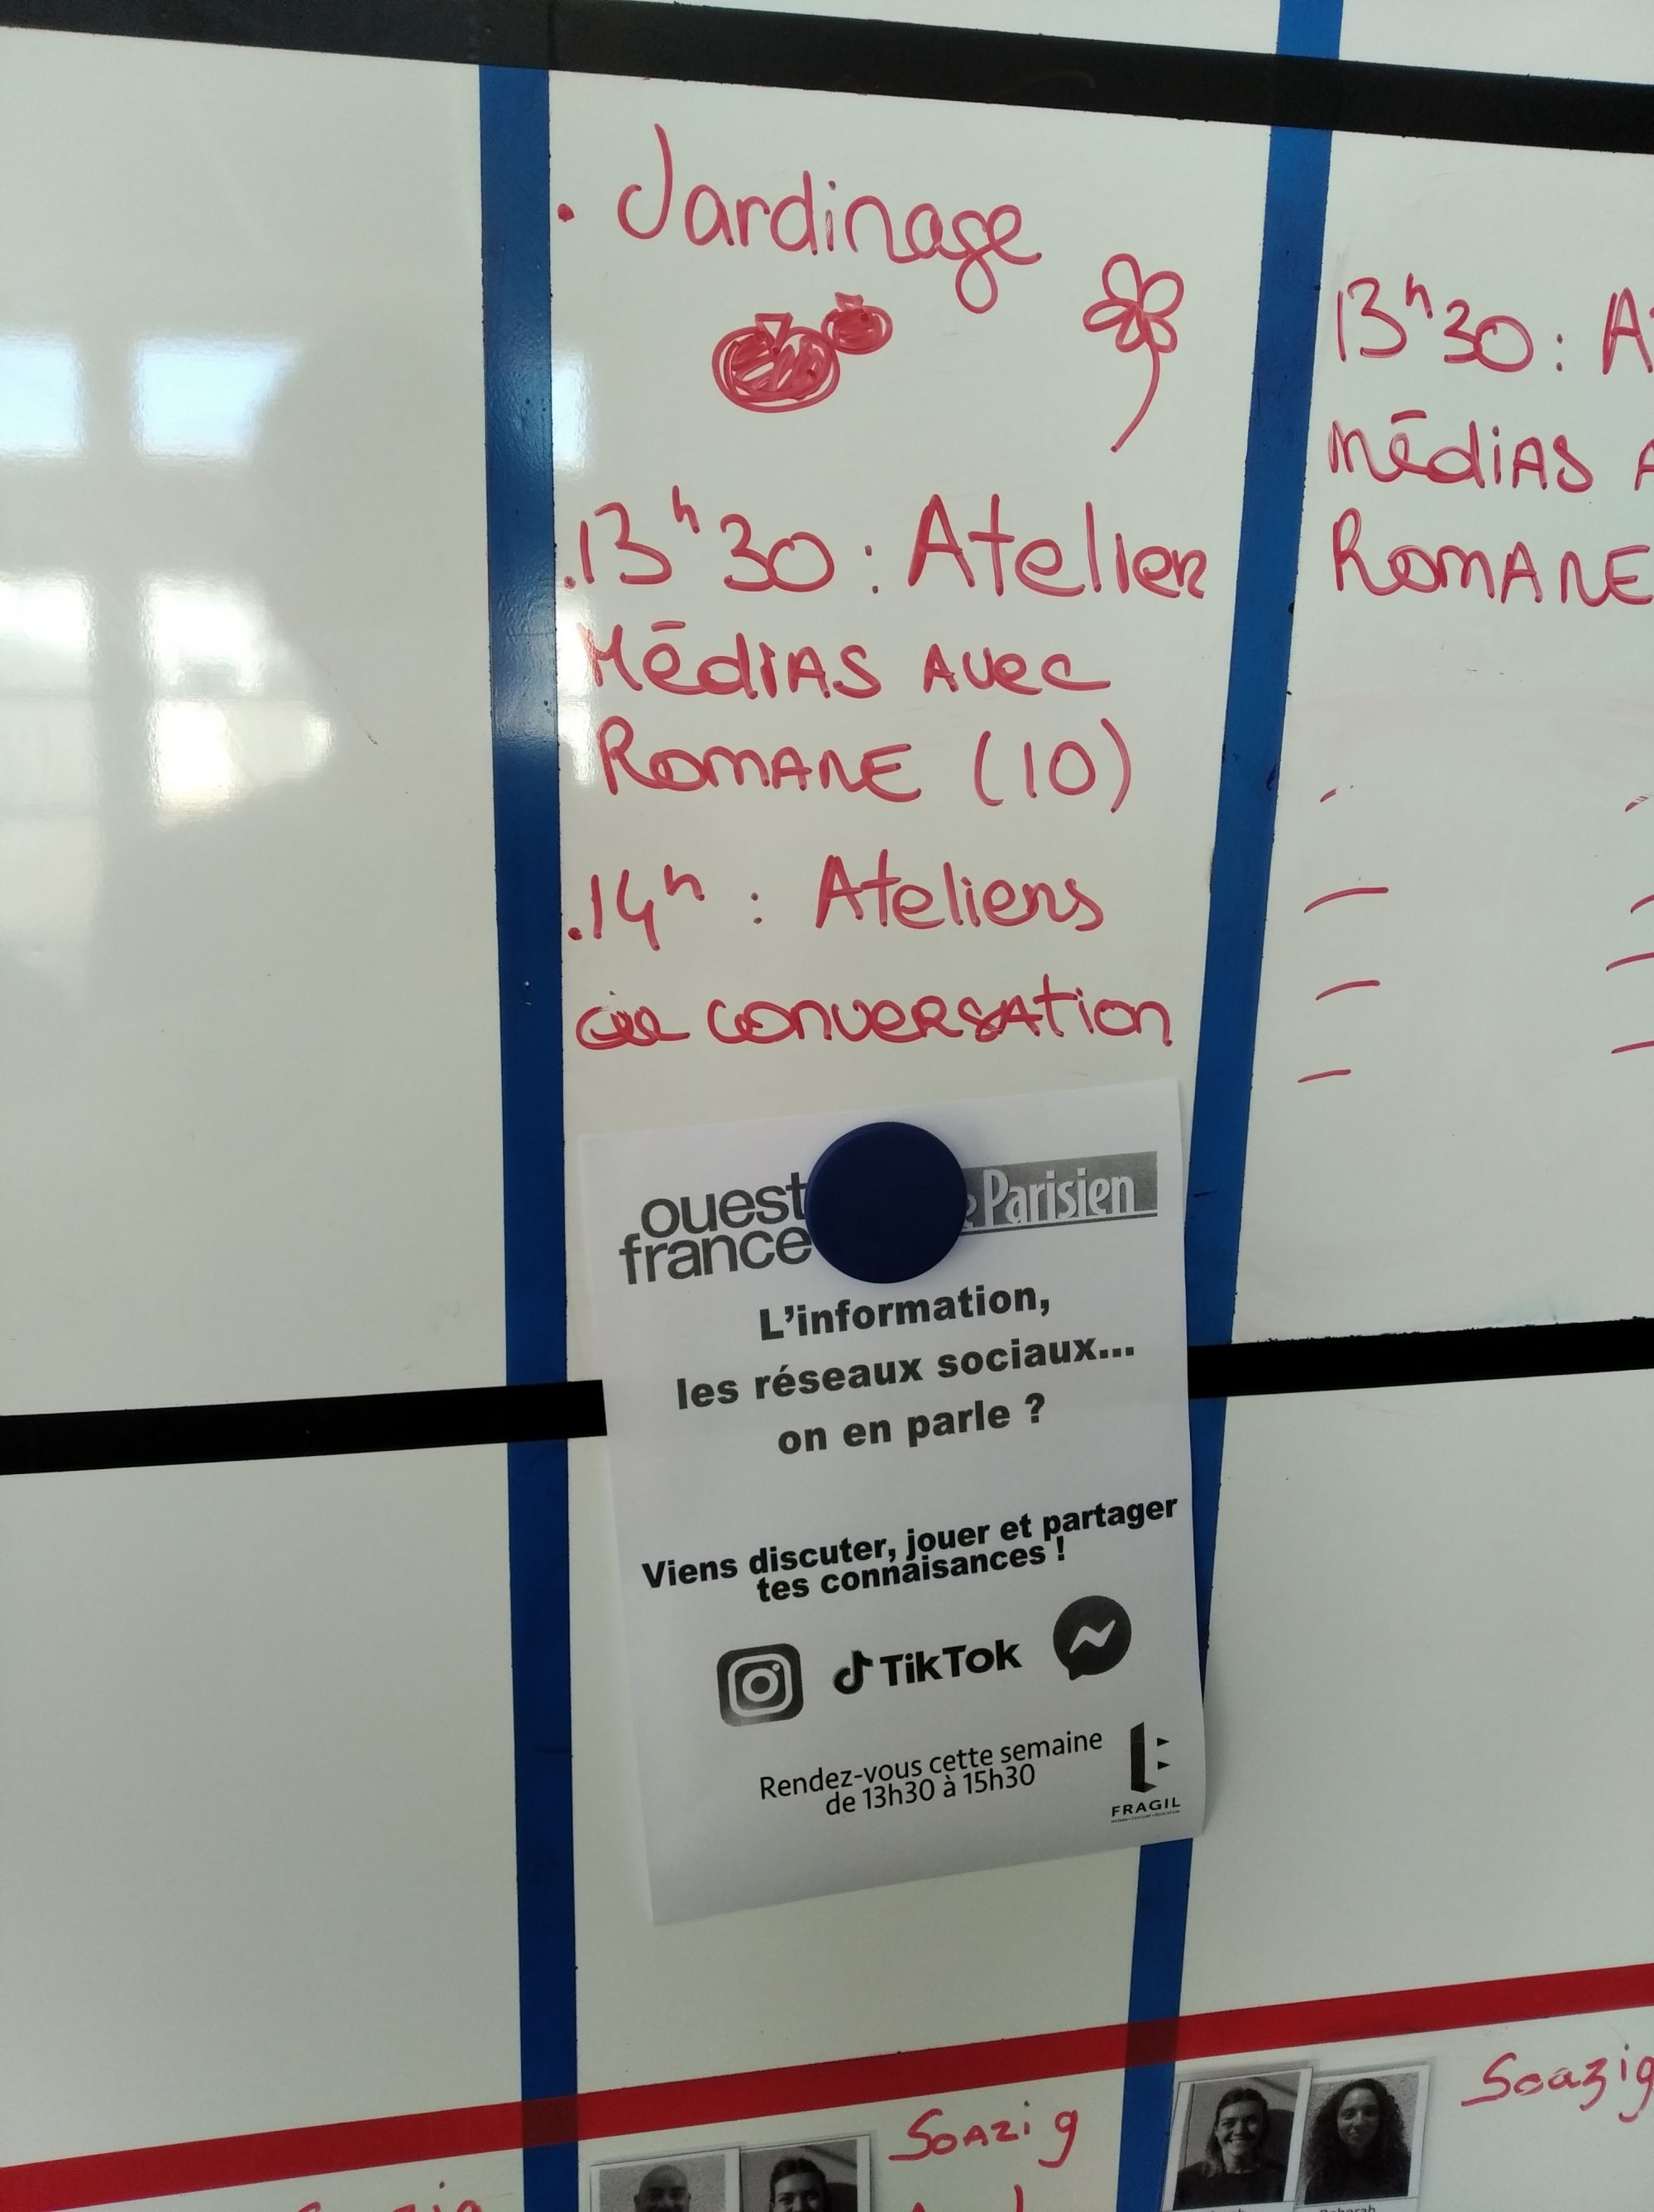 . Jardinage
.13h30 : Atelier
Médias avec
Romane (10)
.14h : Ateliers
de conversation
13h30 : A
médias A
Romane
ouest
france
Parisien
L'information,
les réseaux sociaux...
on en parle ?
Viens discuter, jouer et partager
tes connaisances !
TikTok
Rendez-vous cette semaine
de 13h30 à 15h30
FRAGIL
Soazig
Soazig
Deborah